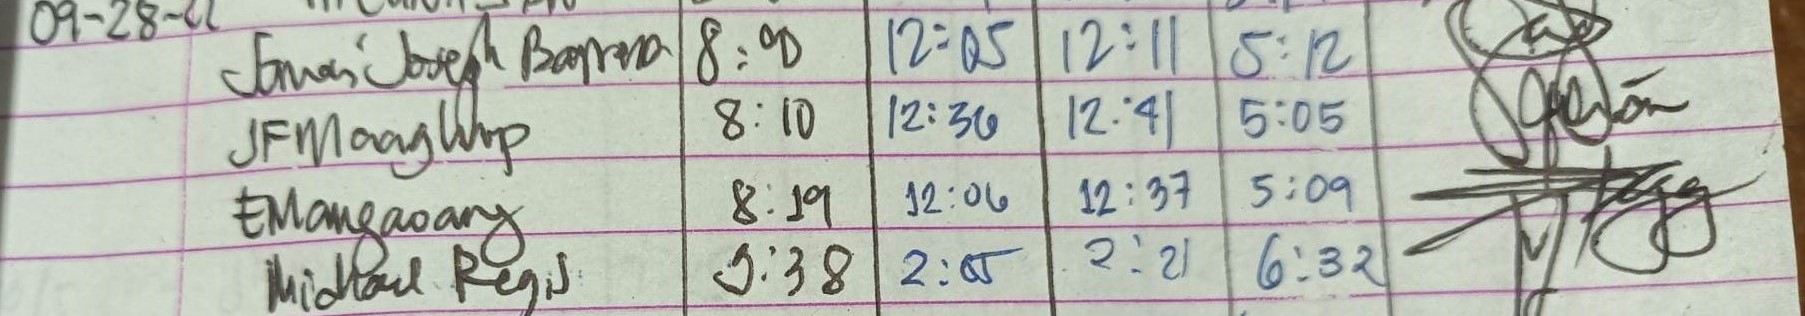 09-28-22
Joseph 8:00 12:05 12:11 5:12
8:10 12:36 12:41 5:05
EMangaoang 8:19 12:06 12:37 5:09
Michael Regis 9:38 2:05 2:21 6:32